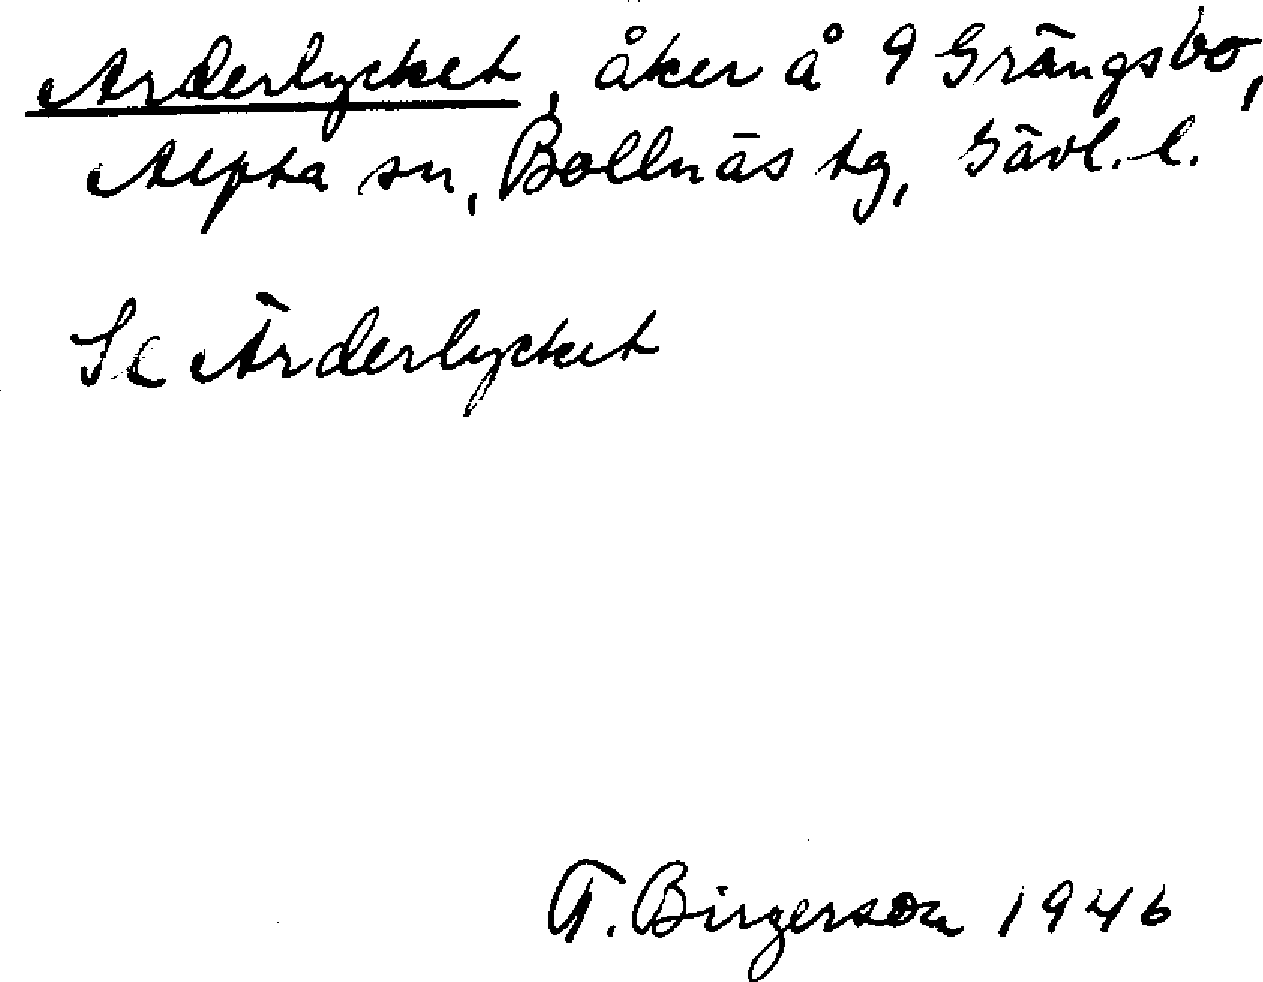 Arderlycket, åker å 9 Grängsbo,
Alfta sn, Bollnäs tg, Gävl. l.
Se Ärderlycket
T. Birgerson 1946